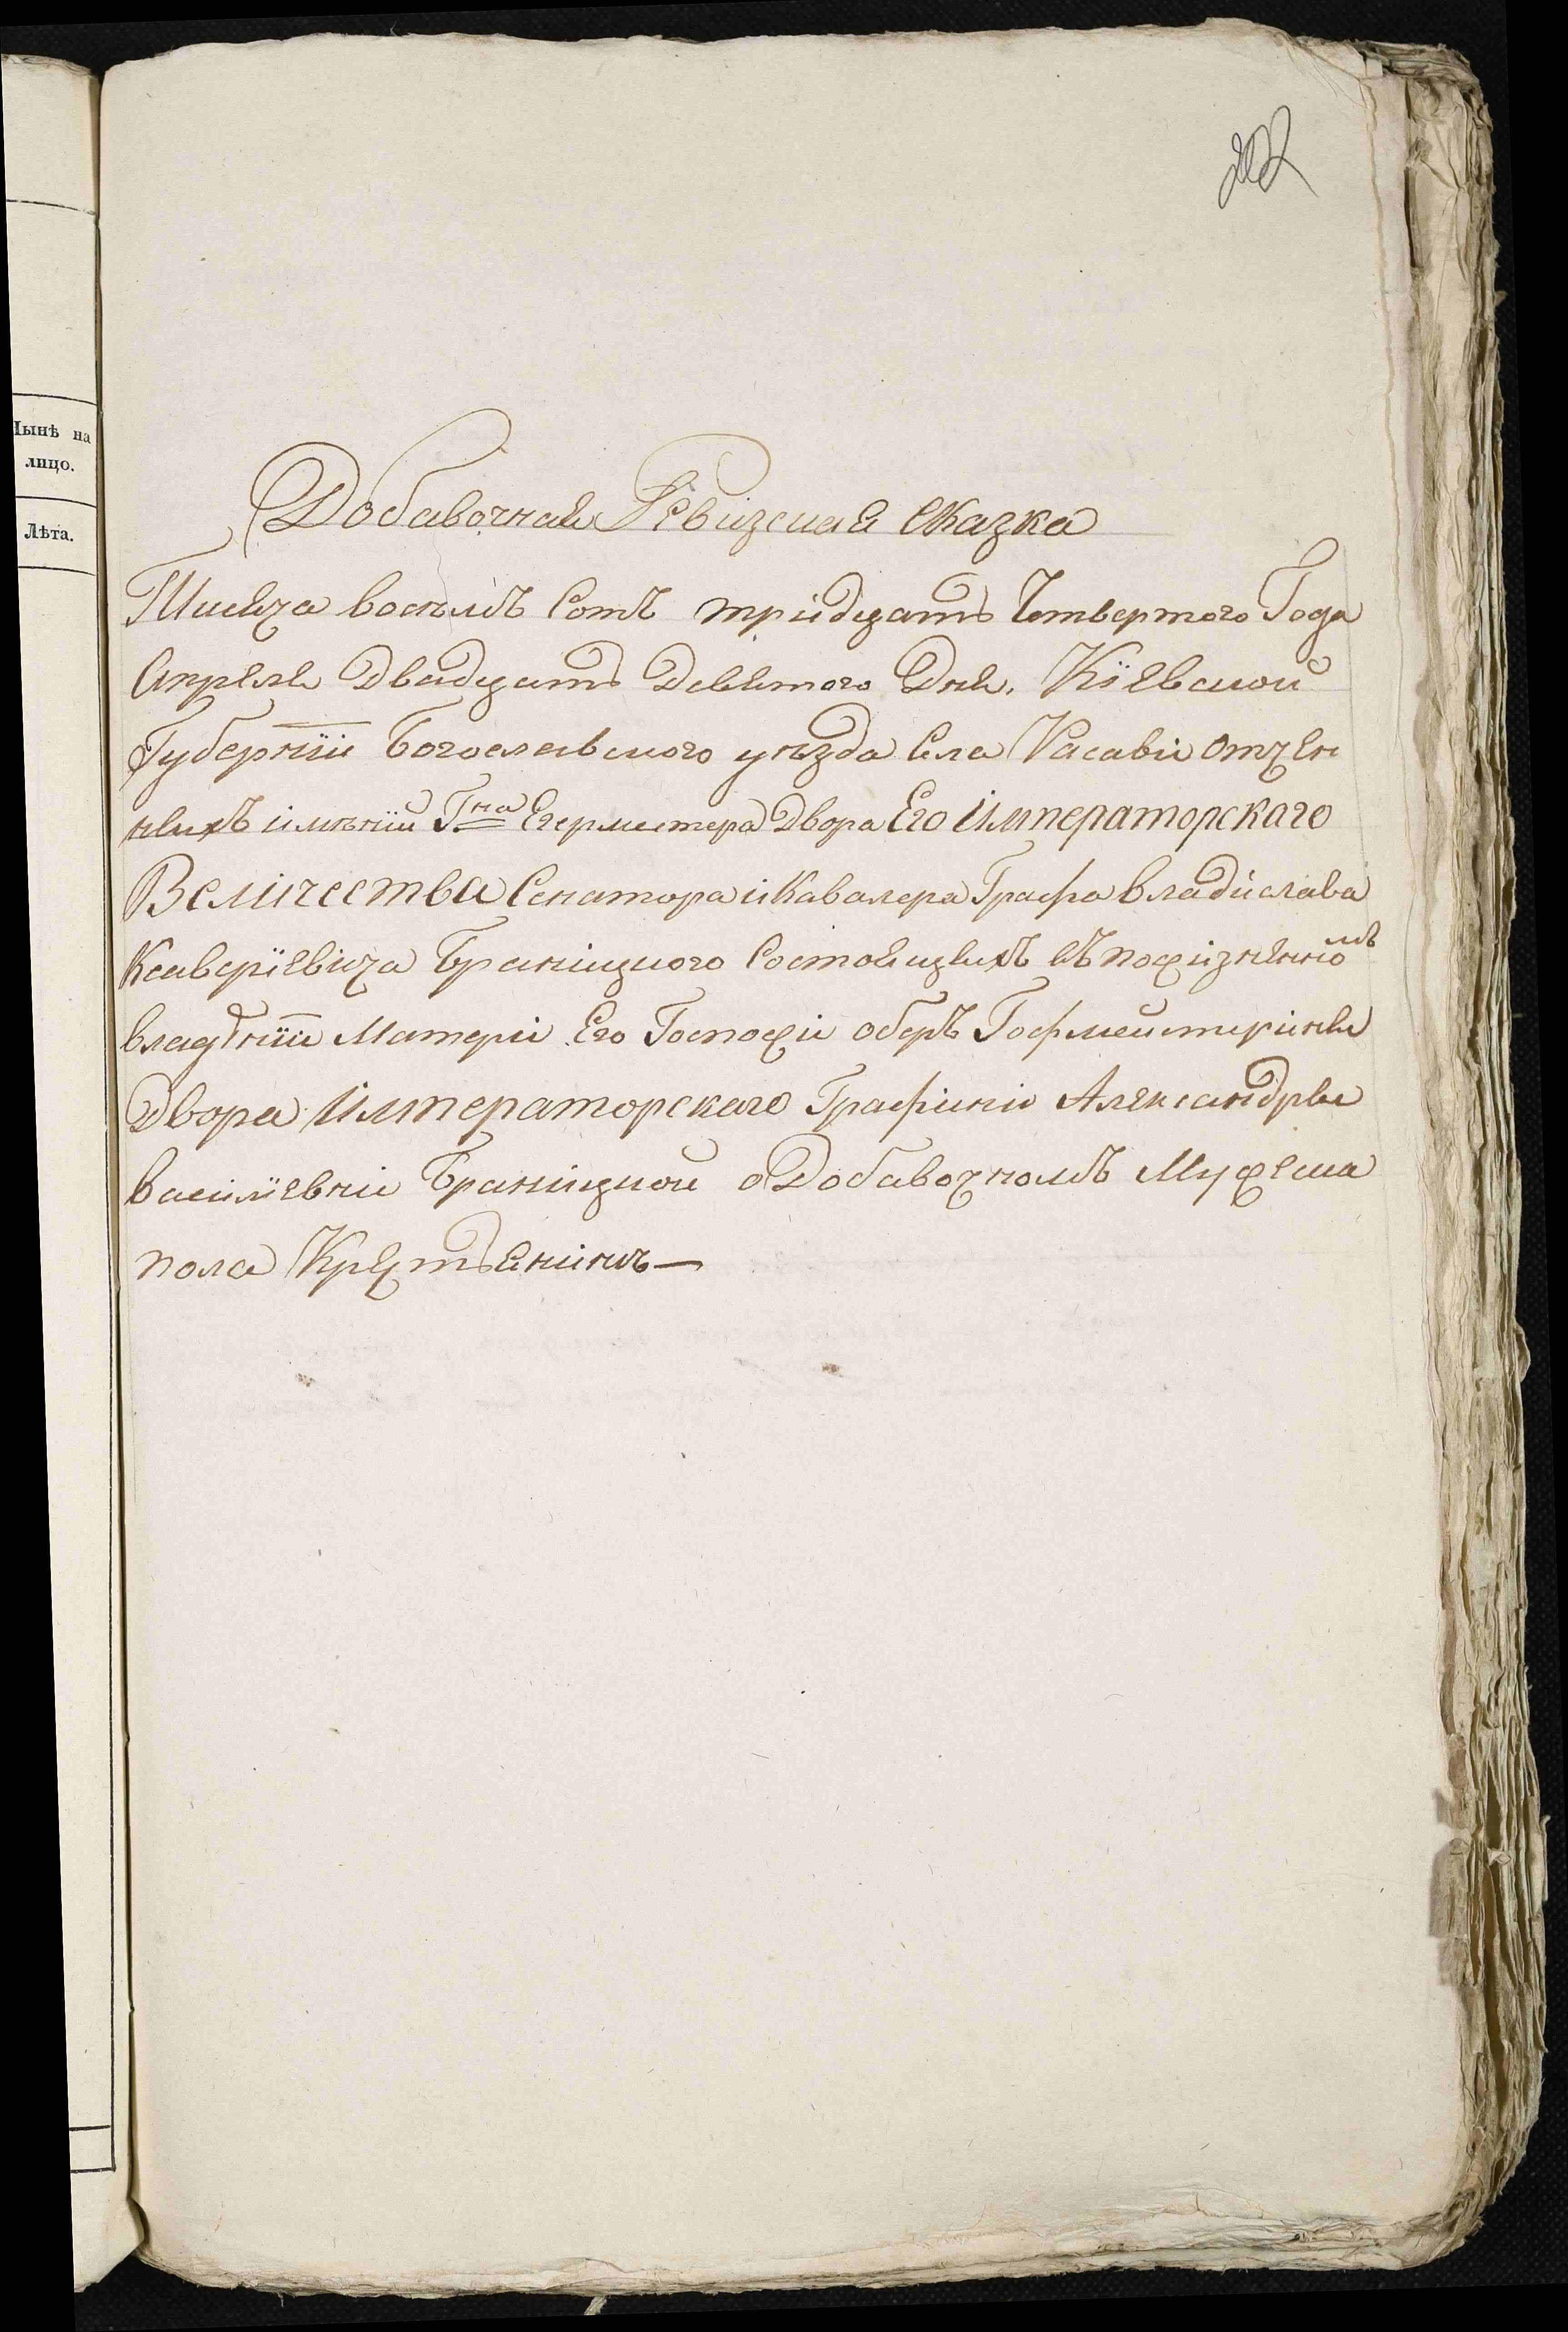 202
Нынѣ на
лицо.
Лѣта.
Добавочная Ревизская сказка
Тисяча восѣмъ Сотъ тридцать Четвертого Года
Апреля двадцать девятого Дня. Кїевской
Губернїи Богославского уѣзда Села Расави отчен
ныхъ имѣнїи Гна Егермистера Двора Его Императорскаго
Величества Сенатора и Кавалера Графа владислава
Ксаверїевича Браницкого Состоящихъ въ пожизненномъ
владѣнїи Матери Его Госпожи оберъ Гофмейстерины
Двора Императорскаго Графини Александры
василїевни Браницкой о Добавочномъ Мужеска
пола Крестьянинѣ—